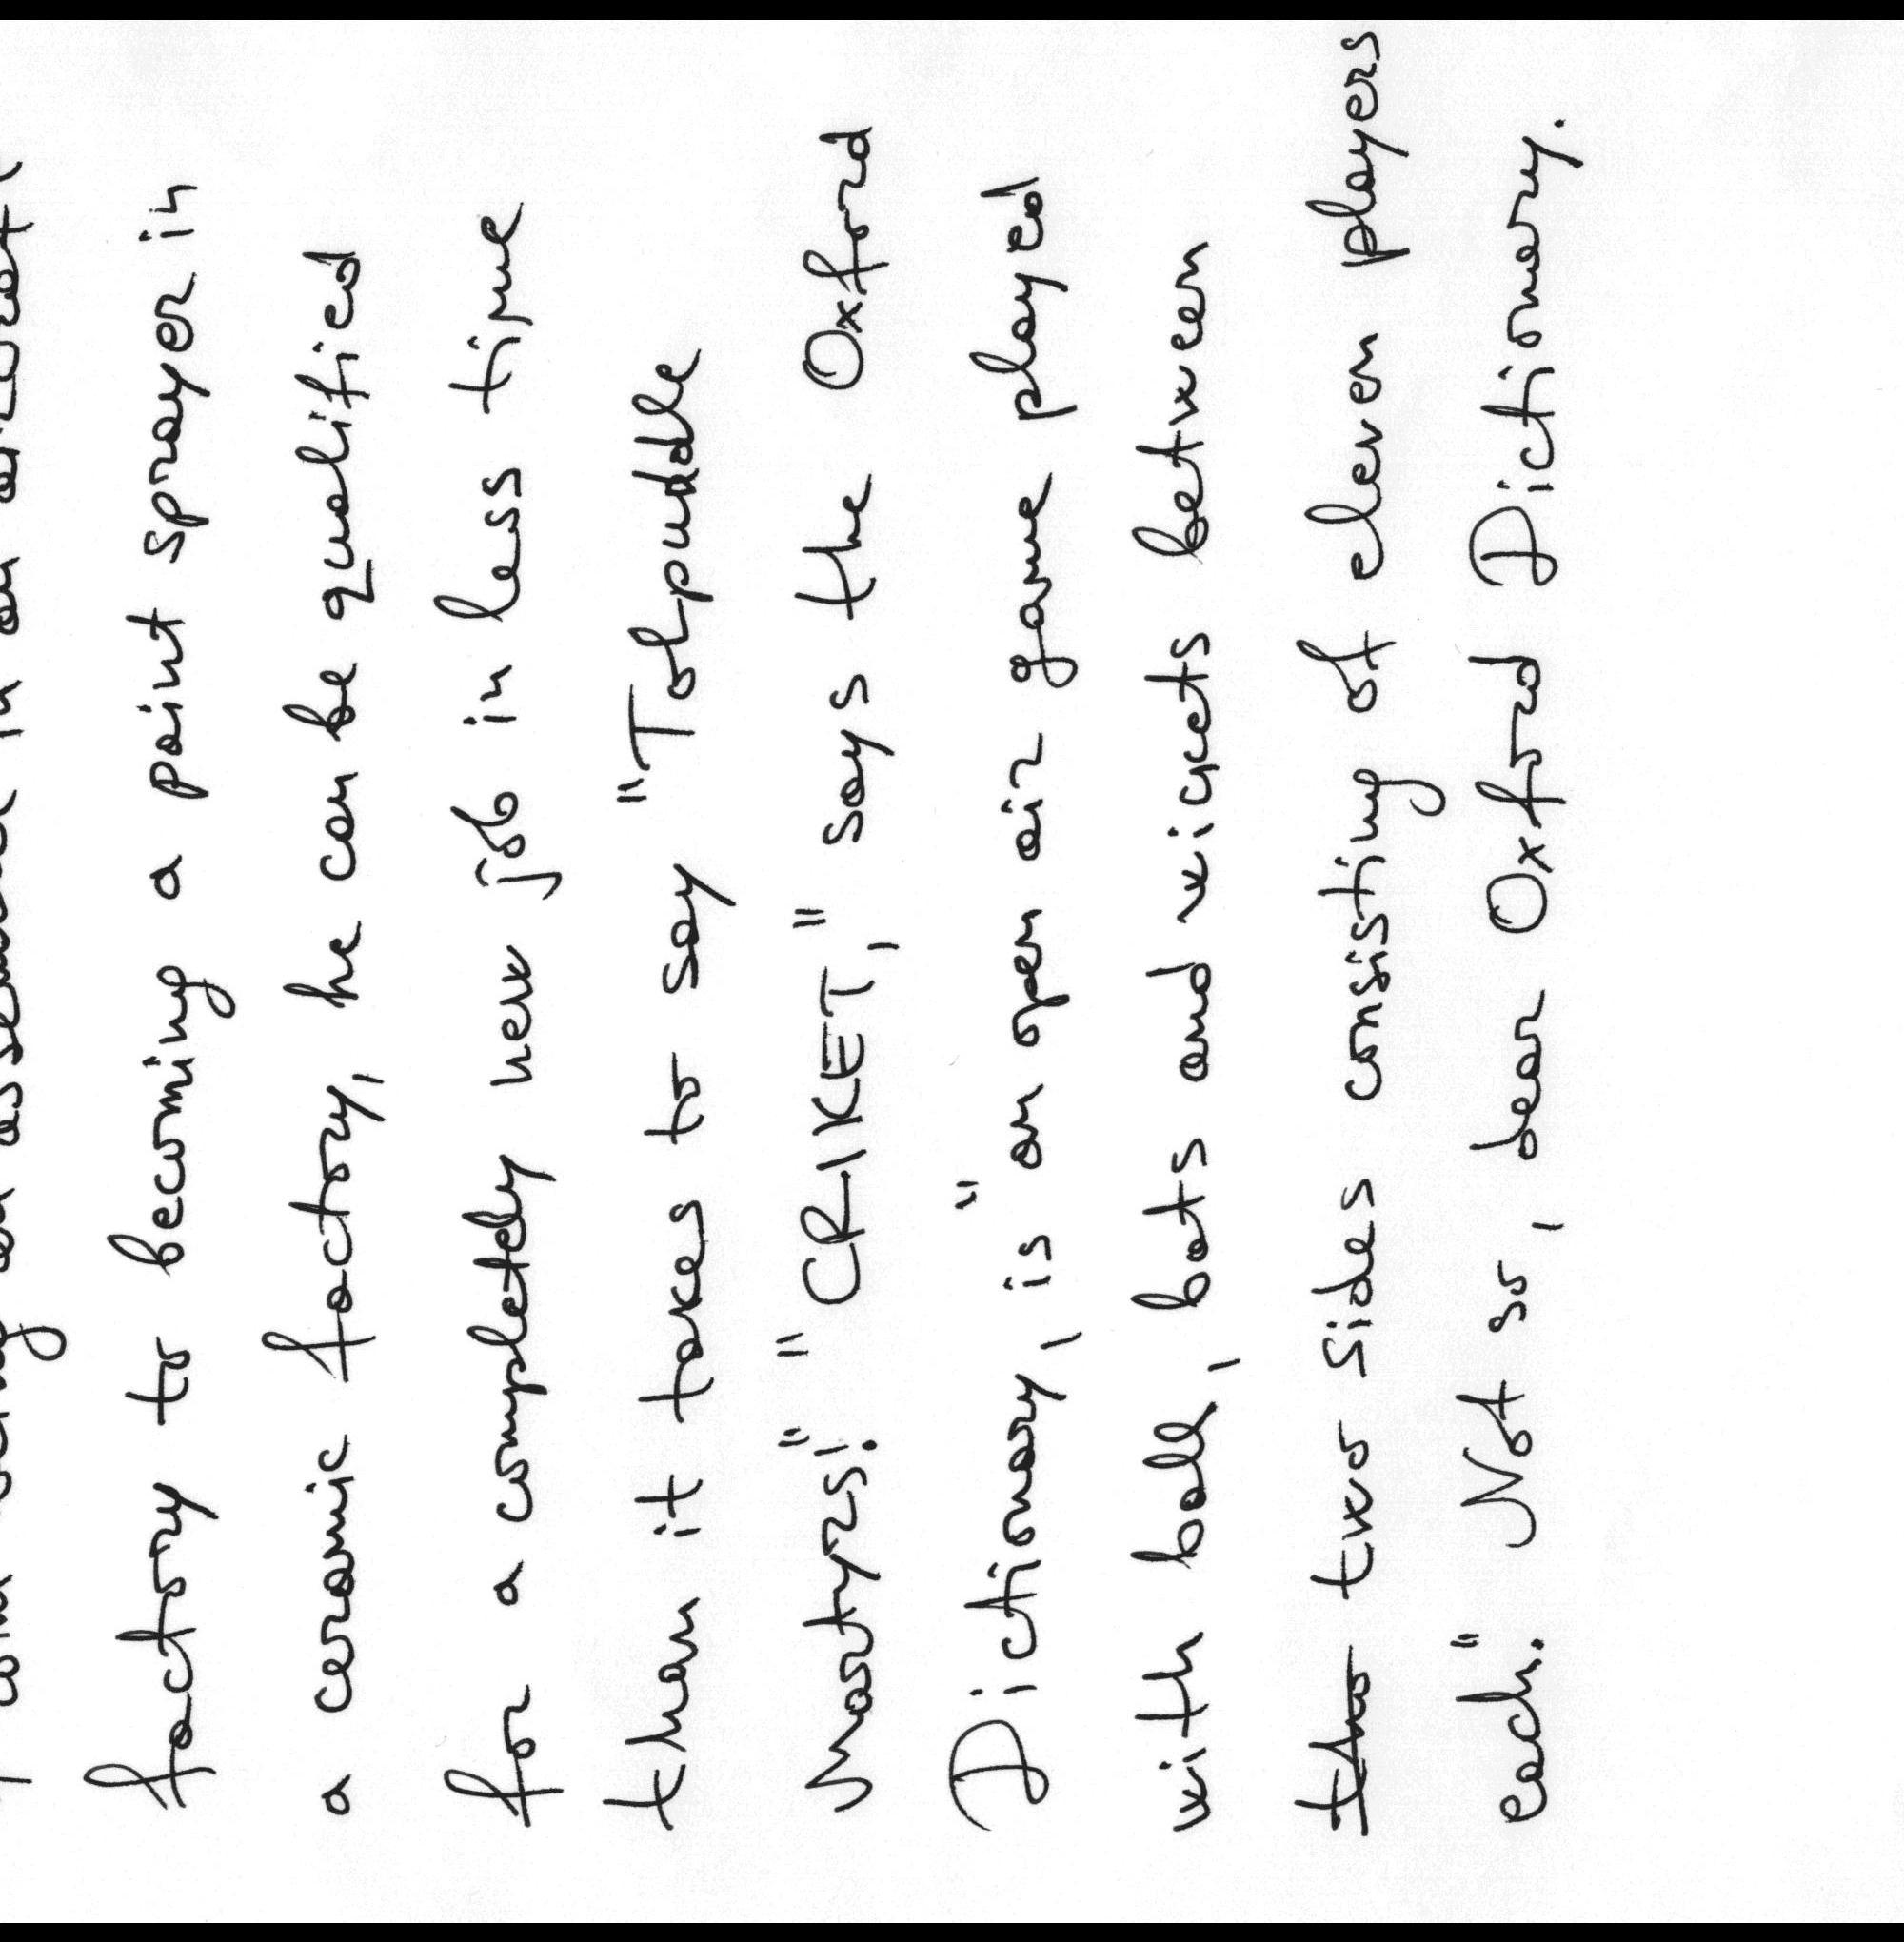 in an aircraft
factory to becoming a paint sprayer in
a ceramic factory, he can be qualified
for a completely new job in less time
than it takes to say "Tolpuddle
Martyrs!" "CRIKET," says the Oxford
Dictionary, is "an open air game played
with ball, bats and wickets between
two sides consisting of eleven players
each." Not so, dear Oxford Dictionary.